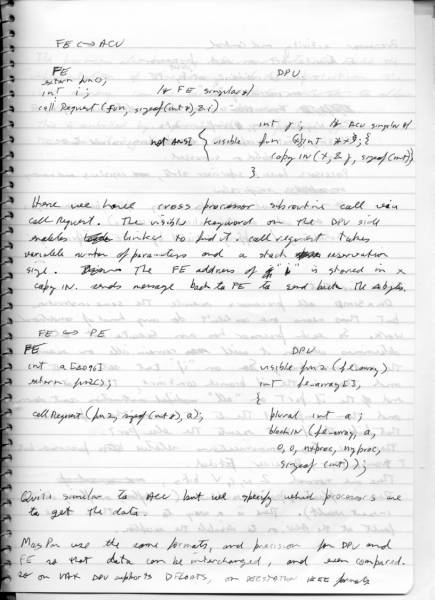 FE <-> ACU
FE DPU
extern fun();
int i; /* FE singular */
callRequest(fun, sizeof(int *), &i)
int y; /* ACU singular */
not ANSI { visible fun (x) int *x; {
copyIN(x, &y, sizeof(int))
}
Here we have cross processor subroutine call via
callRequest. The visible keyword on the DPU side
enables linker to find it. callrequest takes
variable number of parameters and a stack reservation
size. The FE address of "i" is stored in x
copyIN. sends message back to FE to send back the 4 bytes.
FE <-> PE
FE DPU
int a[4096] visible fun2 (fe_array)
extern fun2(); int fe_array[];
callRequest(fun2, sizeof(int *), a); { plural int a;
blockIN (fe_array, a,
0, 0, nxproc, nyproc,
sizeof(int));}
Quite similar to ACU but we specify which processors are
to get the data.
MasPar use the same formats, and precision for DPU and
FE so that data can be interchanged, and even compared.
so on VAX DPU supports DFLOATS, on DECSTATION IEEE formats